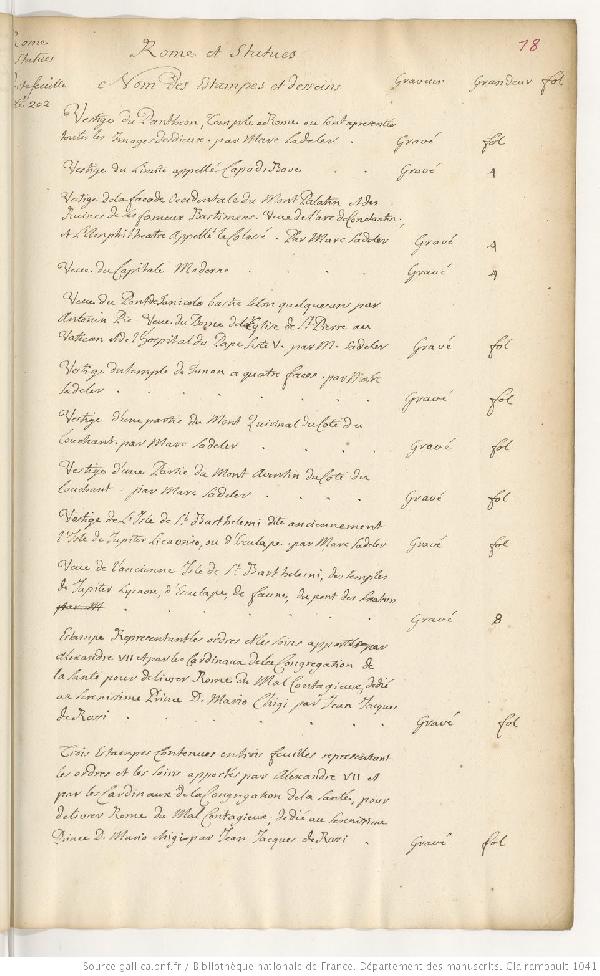 Rome et Statues
18
Rome
Statues
202
Nom Des Estampes et desseins Graveur Grandeur fol
Vestige du Panthem, Temple a Rome ou sont representez
toutes les Images des dieux. par Marc Sadeler . Gravé fol
Vestige du appellé Capo di Bove Gravé 4
Vestige de la façade Occidentale du Mont Palatin et des
Ruines de ses fameux Bastimens. Veue de l'arc de Constantin,
et L'Amphitheatre Appellé le Colisé. Par Marc Sadeler Gravé 4
Veue du Capitole Moderne . . . . Gravé 4
Veue du Pont de Janicolo bastie selon quelques uns par
Antonin Pie. Veue du Dome de l'Eglise de St Pierre au
Vatican et de l'Hospital du Pape Sixte V. par M. Sadeler Gravé fol
Vestige du temple de Junon a quatre faces. par Marc
Sadeler . . . . . . Gravé fol
Vestige d'une partie du Mont Quirinal du Coté du
Couchant. par Marc Sadeler . . . Gravé fol
Vestige d'une Partie du Mont Aventin du Coté du
Couchant. par Marc Sadeler . . . Gravé fol
Vestige de L'Isle de St Barthelemi dite anciennement
l'Isle de Jupiter Licaonie, ou d'Esculape. par Marc Sadeler Gravé fol
Veue de l'ancienne Isle de St Barthelemi, des temples
de Jupiter Lycaon, d'Esculape, de faune, du pont des
par M . . . . . Gravé 8
Estampe Representant les ordres et les soins apportés par
Alexandre VII et par les Cardinaux de la Congregation de
la Santé pour delivrer Rome du Mal Contagieux, dedié
au serenissime Prince D. Mario Chigi par Jean Jacques
de Rossi . . . . . Gravé fol
Trois Estampes Contenues en trois feuilles representant
les ordres et les soins apportés par Alexandre VII et
par les Cardinaux de la Congregation de la Santé, pour
delivrer Rome du Mal Contagieux, dedié au serenissime
Prince D. Mario Chigi par Jean Jacques de Rossi . Gravé fol
Source gallica.bnf.fr / Bibliothèque nationale de France. Département des manuscrits. Clairambault 1041